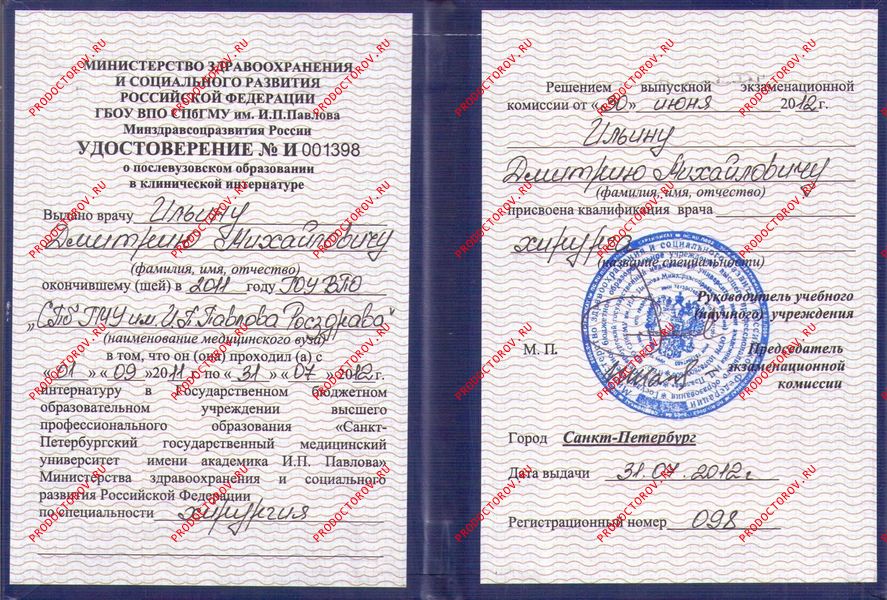 МИНИСТЕРСТВО ЗДРАВООХРАНЕНИЯ
И СОЦИАЛЬНОГО РАЗВИТИЯ
РОССИЙСКОЙ ФЕДЕРАЦИИ
ГБОУ ВПО СПбГМУ им. И.П.Павлова
Минздравсоцразвития России
УДОСТОВЕРЕНИЕ № И 001398
о послевузовском образовании
в клинической интернатуре
Выдано врачу Ильину
Дмитрию Михайловичу
(фамилия, имя, отчество)
окончившему (шей) в 2011 году ГОУ ВПО
„СПбГМУ им. И.П.Павлова Росздрава"
(наименование медицинского вуза)
в том, что он (она) проходил (а) с
«01» «09» 2011 г. по «31» «07» 2012 г.
интернатуру в Государственном бюджетном
образовательном учреждении высшего
профессионального образования «Санкт-
Петербургский государственный медицинский
университет имени академика И.П. Павлова»
Министерства здравоохранения и социального
развития Российской Федерации
по специальности хирургия
Решением выпускной экзаменационной
комиссии от «30» июня 2012 г.
Ильину
Дмитрию Михайловичу
(фамилия, имя, отчество)
присвоена квалификация врача
хирурга
(название специальности)
Руководитель учебного
(научного) учреждения
М. П.
Председатель
экзаменационной
комиссии
Город Санкт-Петербург
Дата выдачи 31.07.2012 г.
Регистрационный номер 098
PRODOCTOROV.RU